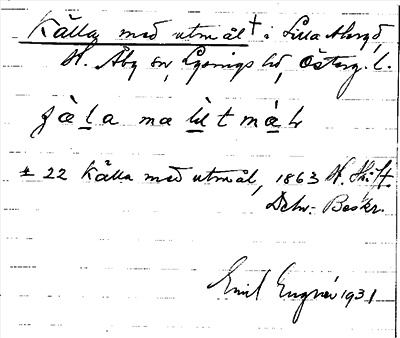 Källa med utmål † i Lilla Åby gd,
N. Åby sn, Lysings hd, Österg. l.
jä̀la ma ùtmàL
± 22 Källa med utmål, 1863 N. Skift.
Deln. Beskr.
Emil Engnér 1931